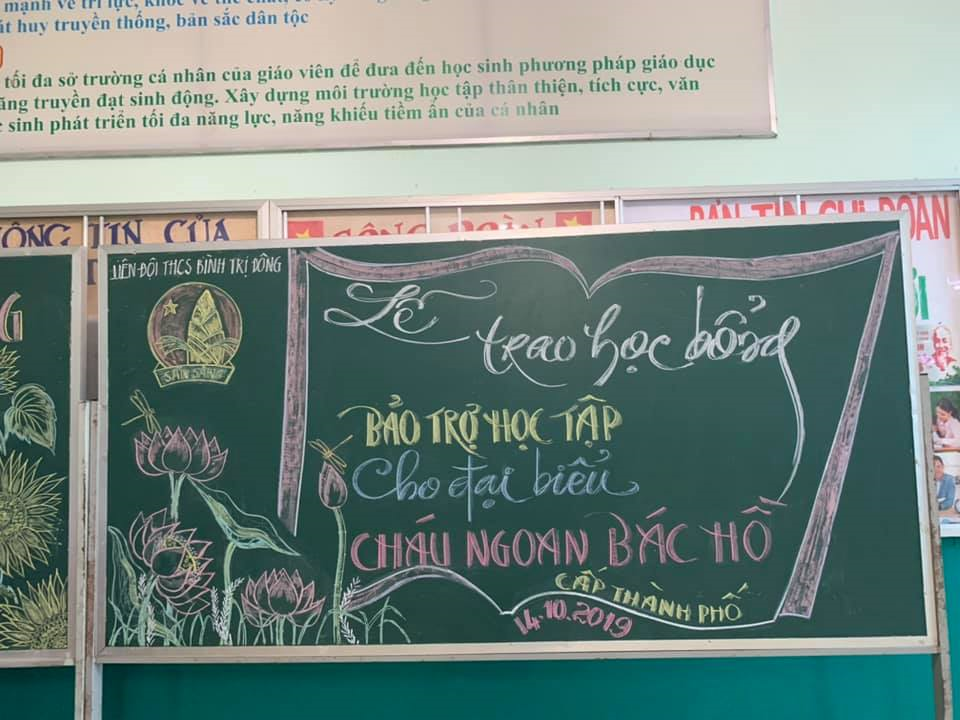 mạnh về trí lực, khỏe về thể chất,
át huy truyền thống, bản sắc dân tộc
tối đa sở trường cá nhân của giáo viên để đưa đến học sinh phương pháp giáo dục
ăng truyền đạt sinh động. Xây dựng môi trường học tập thân thiện, tích cực, văn
c sinh phát triển tối đa năng lực, năng khiếu tiềm ẩn của cá nhân
ÔNG TIN CỦA
CÔNG ĐOÀN
BẢN TIN CHI ĐOÀN
G
LIÊN ĐỘI THCS BÌNH TRỊ ĐÔNG
SẴN SÀNG
Lễ
trao học bổng
BẢO TRỢ HỌC TẬP
Cho đại biểu
CHÁU NGOAN BÁC HỒ
CẤP THÀNH PHỐ
14.10.2019